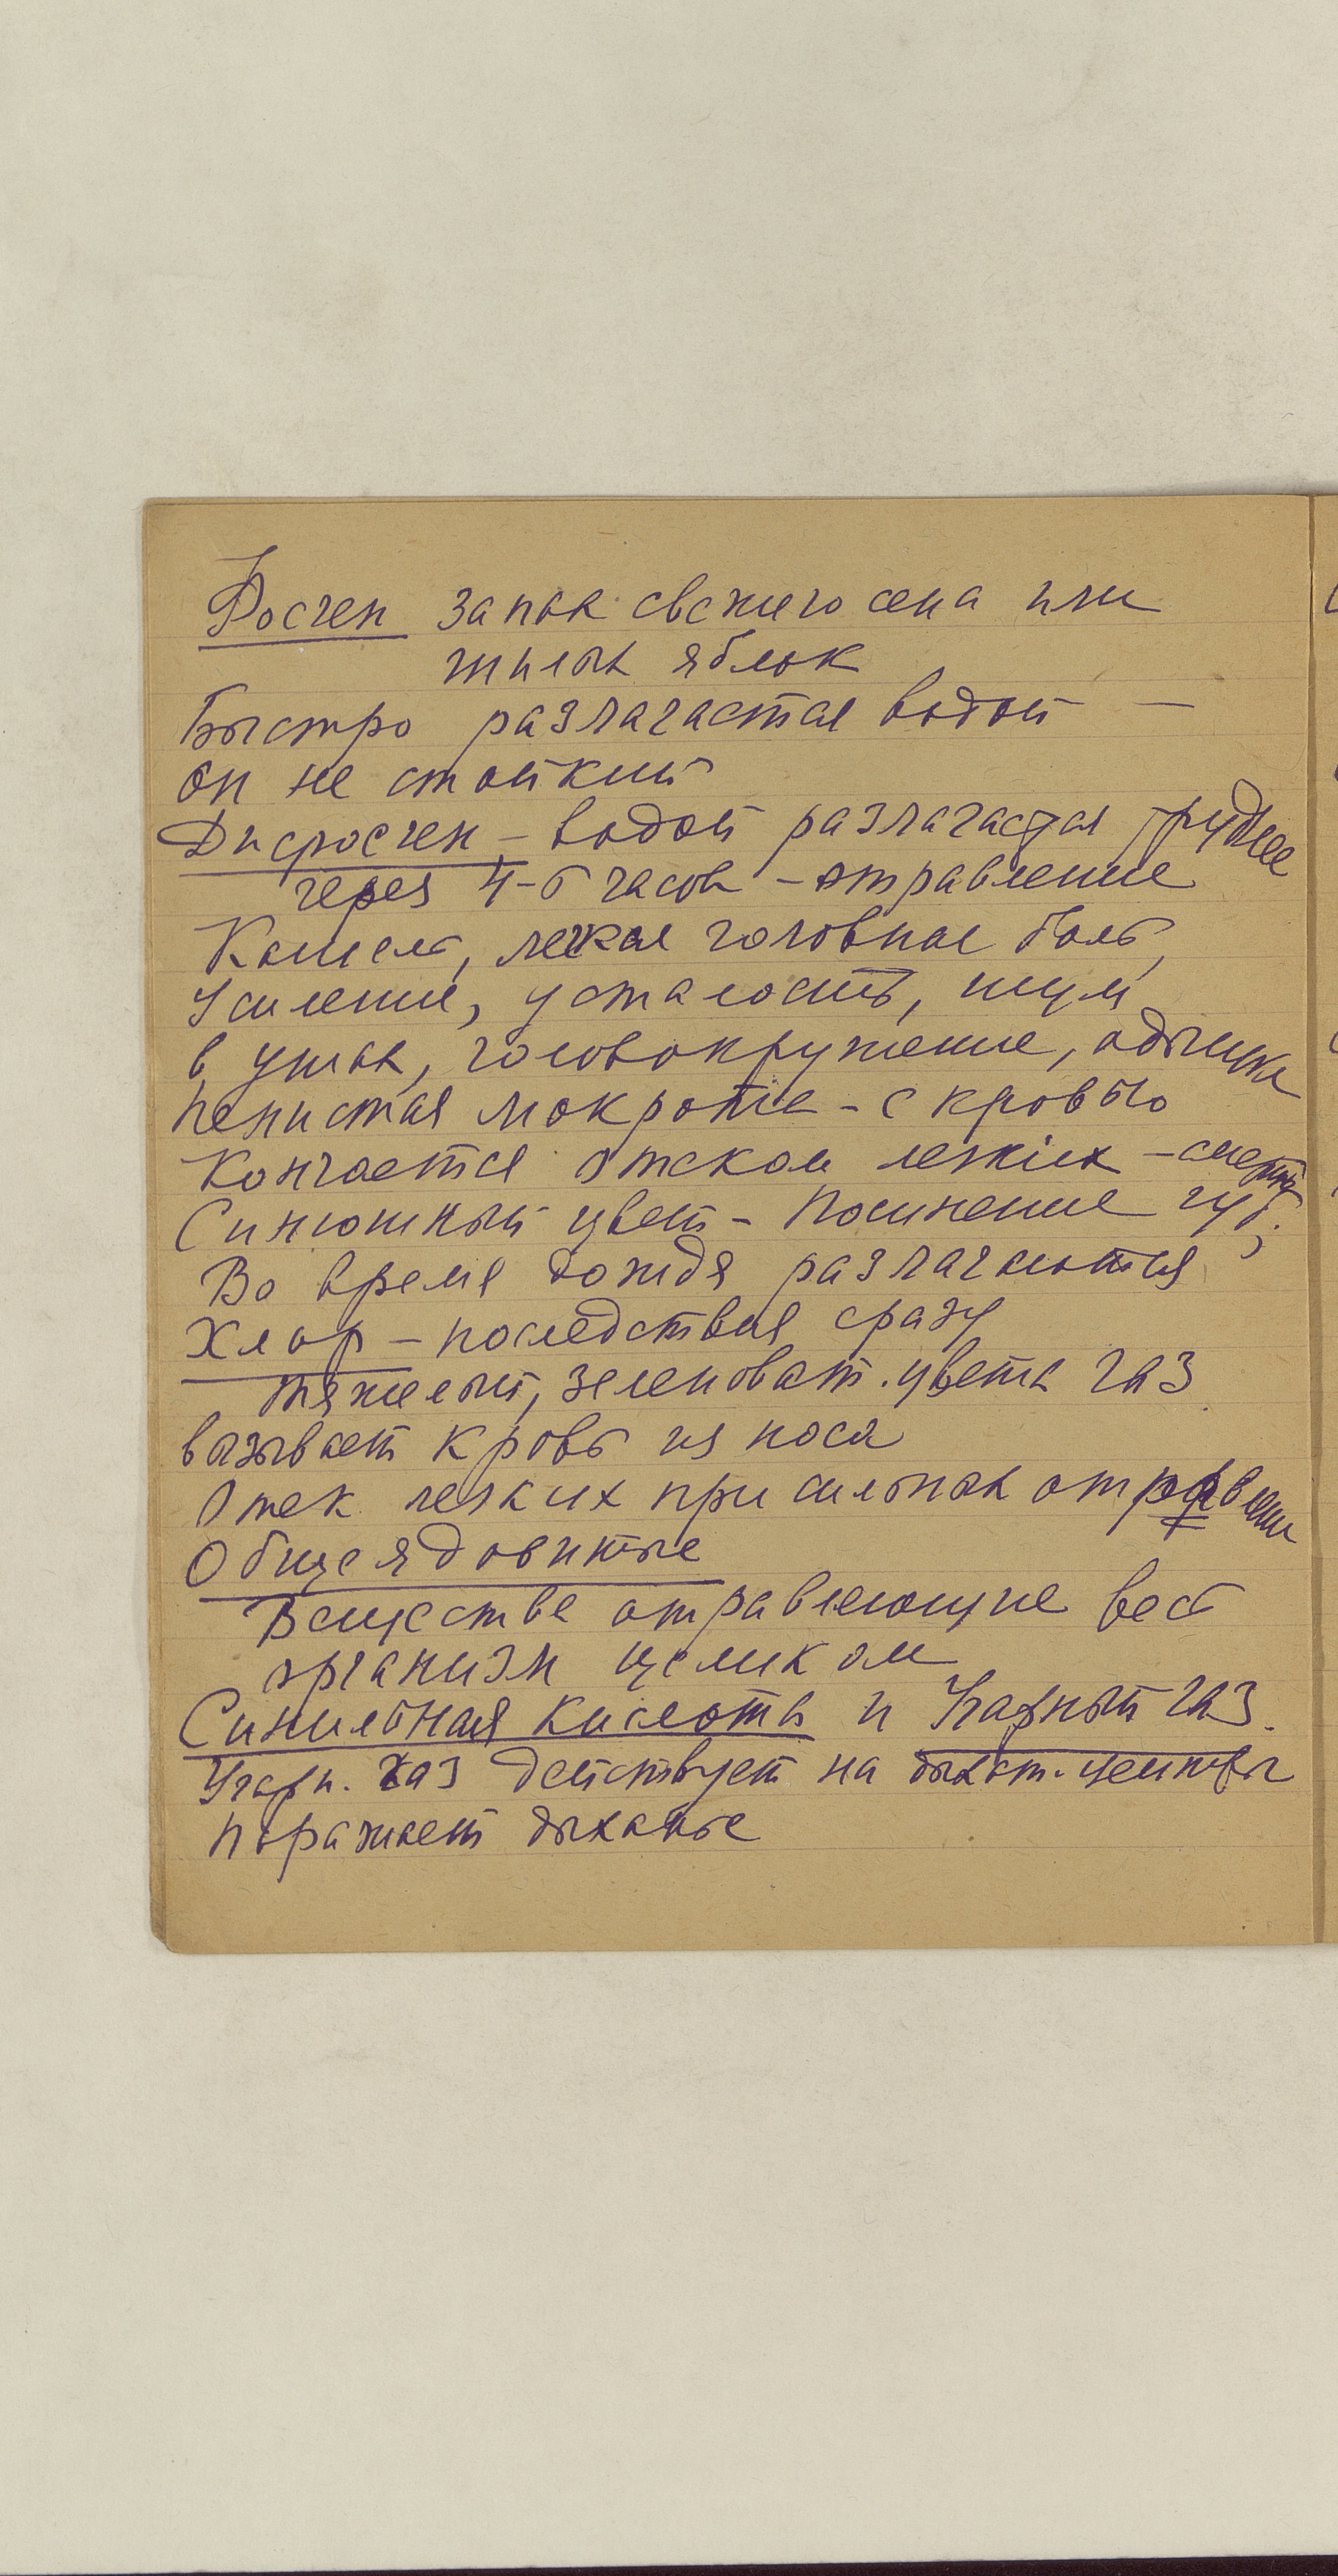 Фосген запах свежего сена или
гнилых яблок
Быстро разлагается водой —
он не стойкий
Дифосген – водой разлагается труднее
через 4-6 часов – отравление
Кашель, легкая головная боль,
усиление, усталость, шум
в ушах, головокружение, одышка
пенистая мокрота – с кровью
Кончается отеком легких – смерть
Синюшный цвет – посинение губ.
Во время дождя разлагаются
Хлор – последствия сразу
тяжелый, зеленоват. цвета газ
вызывает кровь из носа
Отек легких при сильных отравлени
Общеядовитые
Вещества отравляющие весь
организм целиком
Синильная кислота и Угарный газ.
Угарн. газ действует на дыхат. центры
поражает дыханье